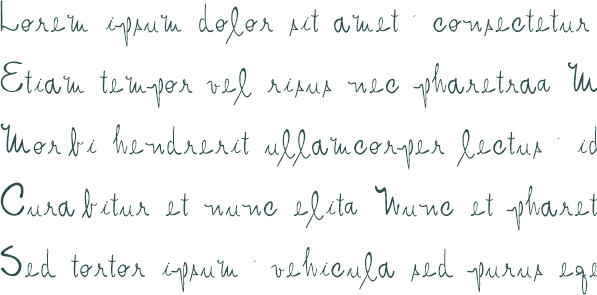 Lorem ipsum dolor sit amet consectetur
Etiam tempor vel risus nec pharetraa M
Morbi hendrerit ullamcorper lectus id
Curabitur et nunc elita Nunc et pharet
Sed tortor ipsum vehicula sed purus ege